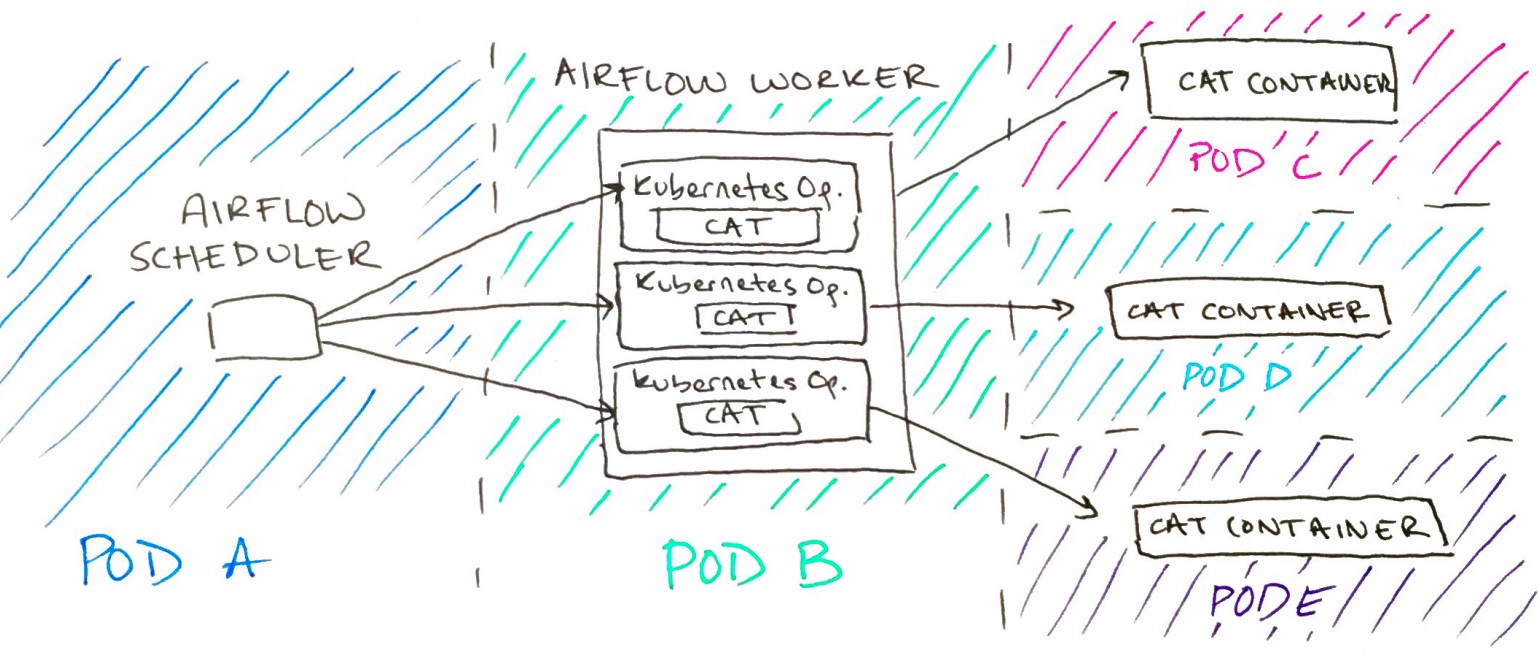 AIRFLOW
SCHEDULER
POD A
AIRFLOW WORKER
Kubernetes Op.
CAT
Kubernetes Op.
CAT
Kubernetes Op.
CAT
POD B
CAT CONTAINER
POD C
CAT CONTAINER
POD D
CAT CONTAINER
POD E